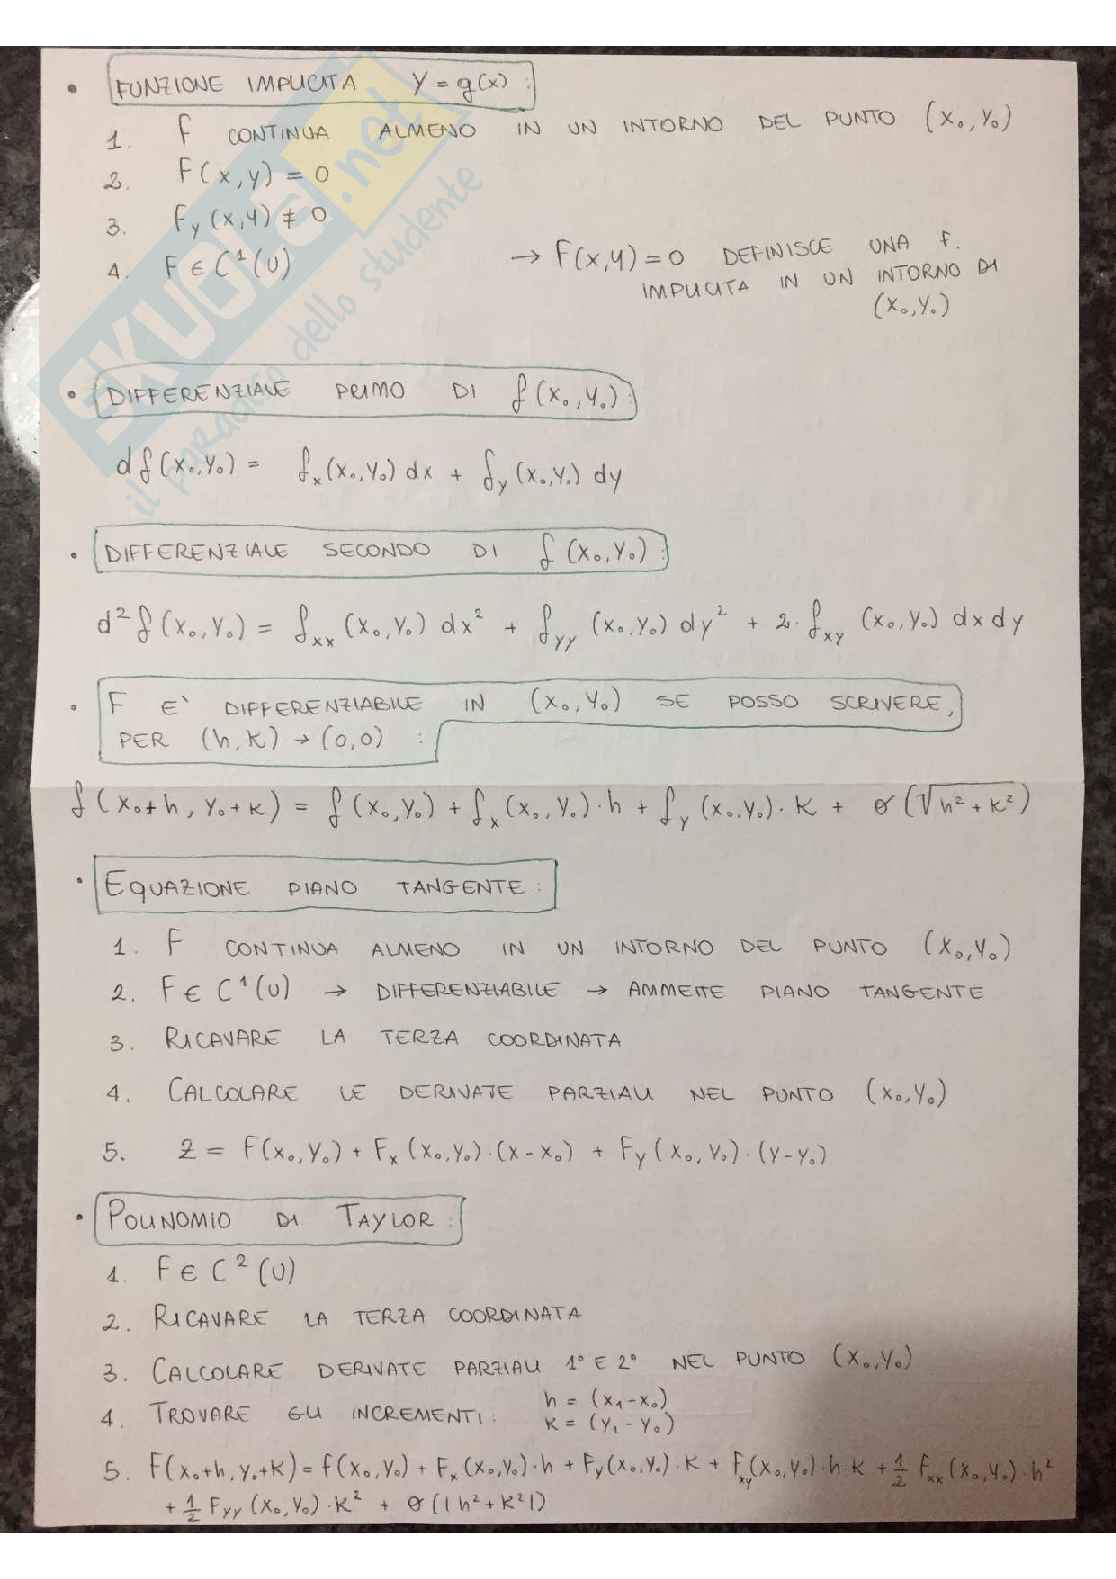 SKUOLA.net
il paradiso dello studente
• FUNZIONE IMPLICITA y = g(x) :
1. F CONTINUA ALMENO IN UN INTORNO DEL PUNTO (x₀, y₀)
2. F(x, y) = 0
3. F_y (x, y) ≠ 0
4. F ∈ C¹(U) → F(x, y) = 0 DEFINISCE UNA F.
IMPLICITA IN UN INTORNO DI
(x₀, y₀)
• DIFFERENZIALE PRIMO DI f(x₀, y₀) :
df(x₀, y₀) = f_x (x₀, y₀) dx + f_y (x₀, y₀) dy
• DIFFERENZIALE SECONDO DI f(x₀, y₀) :
d²f(x₀, y₀) = f_xx (x₀, y₀) dx² + f_yy (x₀, y₀) dy² + 2· f_xy (x₀, y₀) dx dy
• F E' DIFFERENZIABILE IN (x₀, y₀) SE POSSO SCRIVERE,
PER (h, k) → (0,0) :
f(x₀+h, y₀+k) = f(x₀, y₀) + f_x (x₀, y₀)·h + f_y (x₀, y₀)·k + σ(√h² + k²)
• EQUAZIONE PIANO TANGENTE :
1. F CONTINUA ALMENO IN UN INTORNO DEL PUNTO (x₀, y₀)
2. F ∈ C¹(U) → DIFFERENZIABILE → AMMETTE PIANO TANGENTE
3. RICAVARE LA TERZA COORDINATA
4. CALCOLARE LE DERIVATE PARZIALI NEL PUNTO (x₀, y₀)
5. Z = F(x₀, y₀) + F_x (x₀, y₀)·(x-x₀) + F_y (x₀, y₀)·(y-y₀)
• POLINOMIO DI TAYLOR :
1. F ∈ C²(U)
2. RICAVARE LA TERZA COORDINATA
3. CALCOLARE DERIVATE PARZIALI 1° E 2° NEL PUNTO (x₀, y₀)
4. TROVARE GLI INCREMENTI: h = (x₁-x₀)
k = (y₁-y₀)
5. F(x₀+h, y₀+k) = f(x₀, y₀) + F_x (x₀, y₀)·h + F_y (x₀, y₀)·k + F_xy (x₀, y₀)·h·k + ½ F_xx (x₀, y₀)·h²
+ ½ F_yy (x₀, y₀)·k² + σ(|h² + k²|)